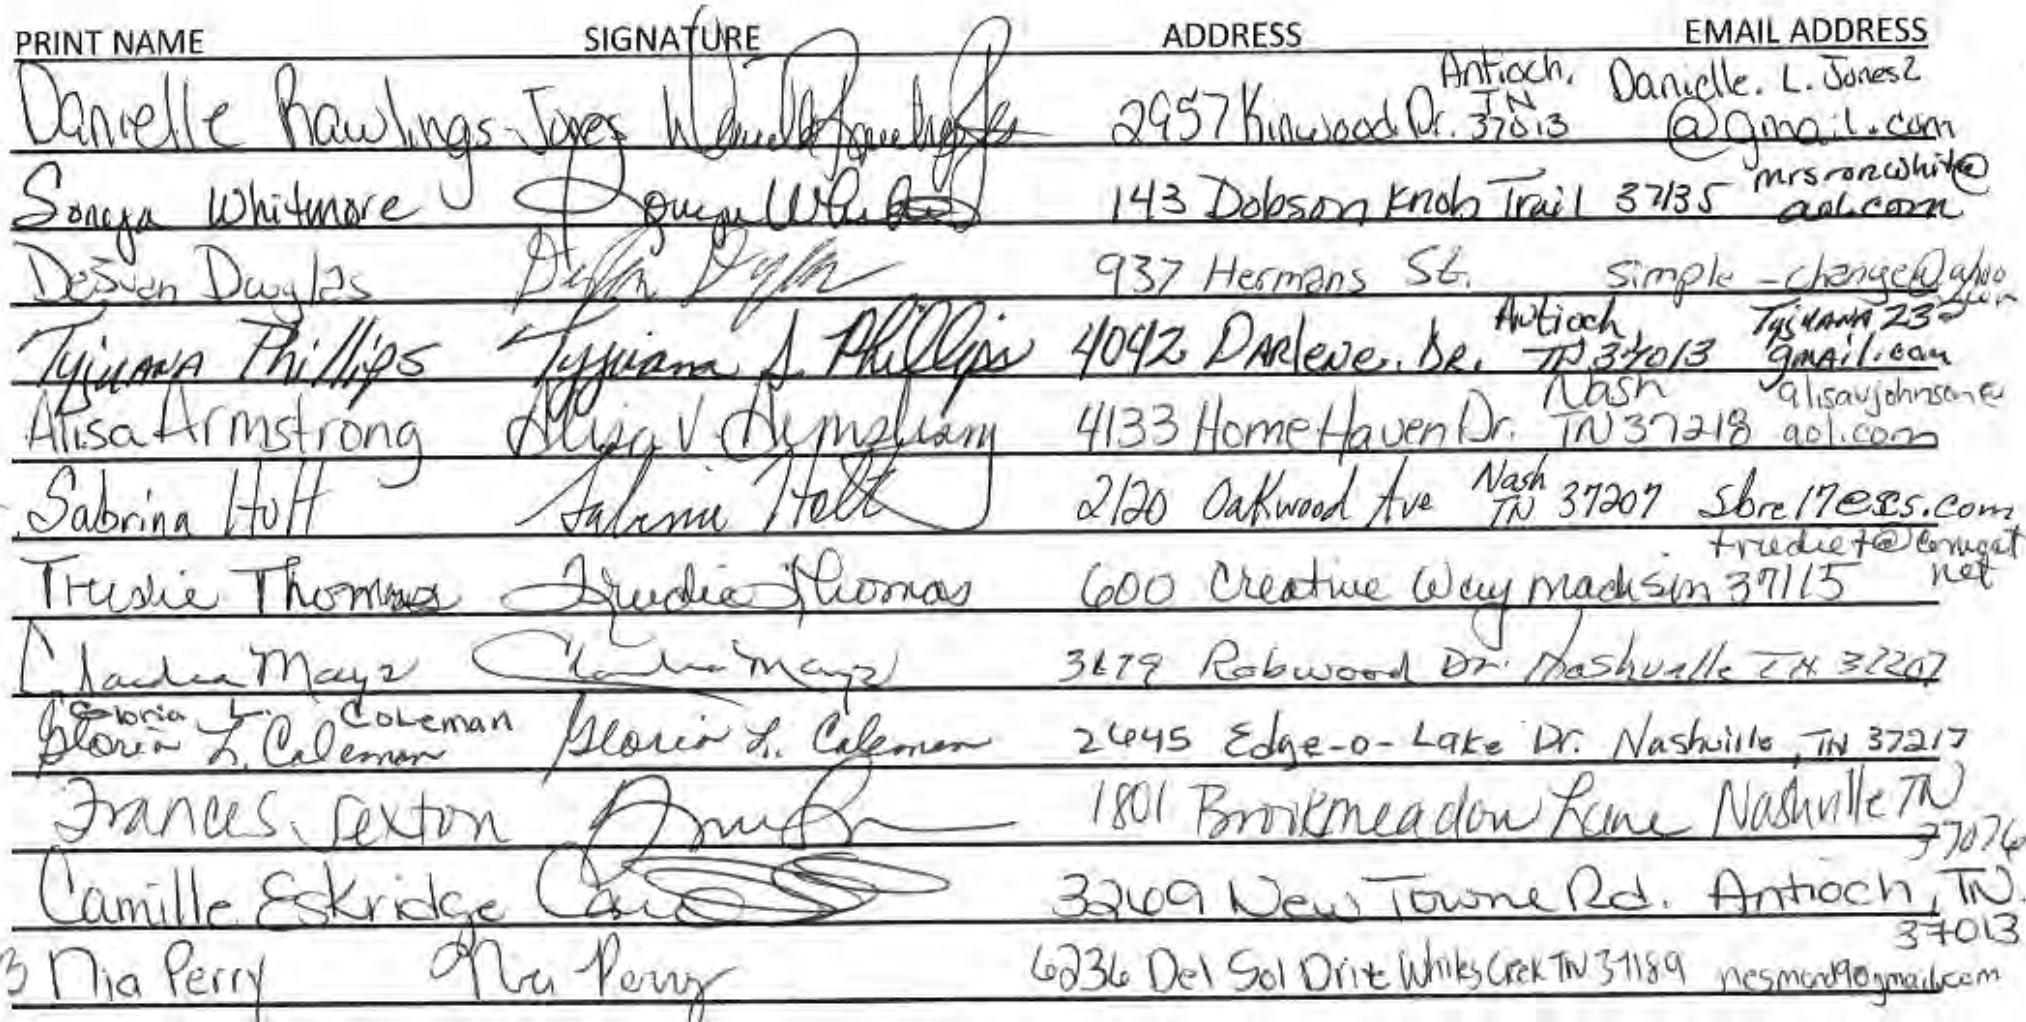 PRINT NAME SIGNATURE ADDRESS EMAIL ADDRESS
Danielle Rawlings-Jones 2957 Kinwood Dr. Antioch, TN 37013 Danielle.L.Jones2@gmail.com
Sonya Whitmore 143 Dobson Knob Trail 37135 mrsronwhit@aol.com
Douglas 937 Hermans St.
Tyjuana Phillips Tyjuana J. Phillips 4042 Darlene. Dr. Antioch, TN 37013 gmail.com
Alisa Armstrong Alisa V Armstrong 4133 Home Haven Dr. Nash TN 37218 alisavjohnson@aol.com
Sabrina Holt Sabrina Holt 2120 Oakwood Ave Nash TN 37207
Trudie Thomas Trudie Thomas 600 Creative Way Madison 37115
Claudia Mayz Claudia Mayz Robwood Dr. Nashville TN 37207
Gloria L. Coleman
Gloria L. Coleman Gloria L. Coleman 2645 Edge-o-Lake Dr. Nashville, TN 37217
Frances Sexton 1801 Brookmeadow Lane Nashville TN 37076
Camille Eskridge 3269 New Towne Rd. Antioch, TN. 37013
3 Nia Perry Nia Perry 6236 Del Sol Drive Whites Creek TN 37189